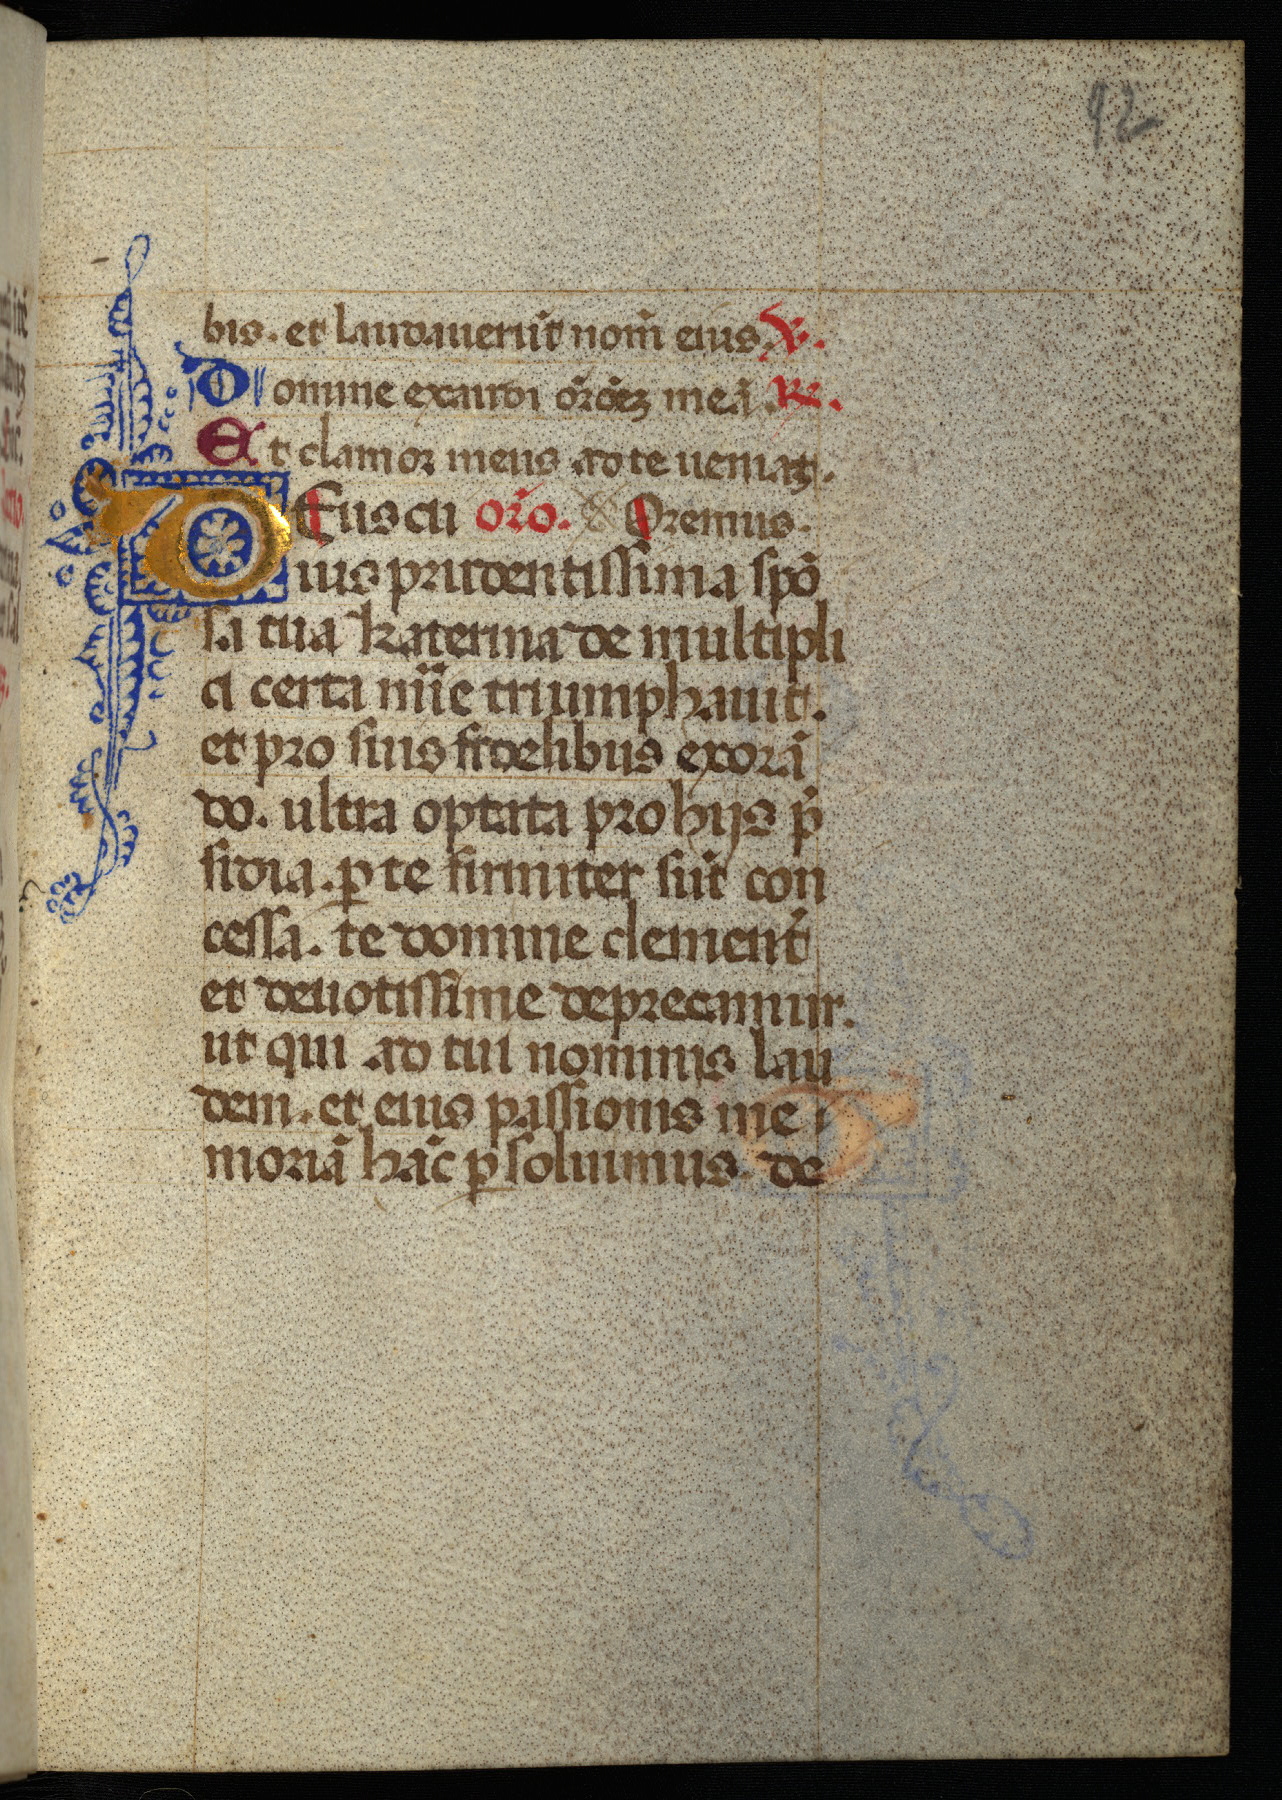 92
bis. et laudaueru̅t nom̅ eius. V.
Domine exaudi or̅oeʒ mea̅. R.
Et clamor meus ad te ueniat.
DEus cu or̅o. Oremus.
ius prudentissima spo̅
sa tua katerina de multipli
ci certamine triumphauit.
et pro suis fidelibus exora̅
do. ultra optata pro hijs p̅
sidia. per te firmiter su̅t con
cessa. te domine clement̅
et deuotissime deprecamur.
ut qui ad tui nominis lau
dem. et eius passionis me
moria̅ ha̅c persoluimus. de